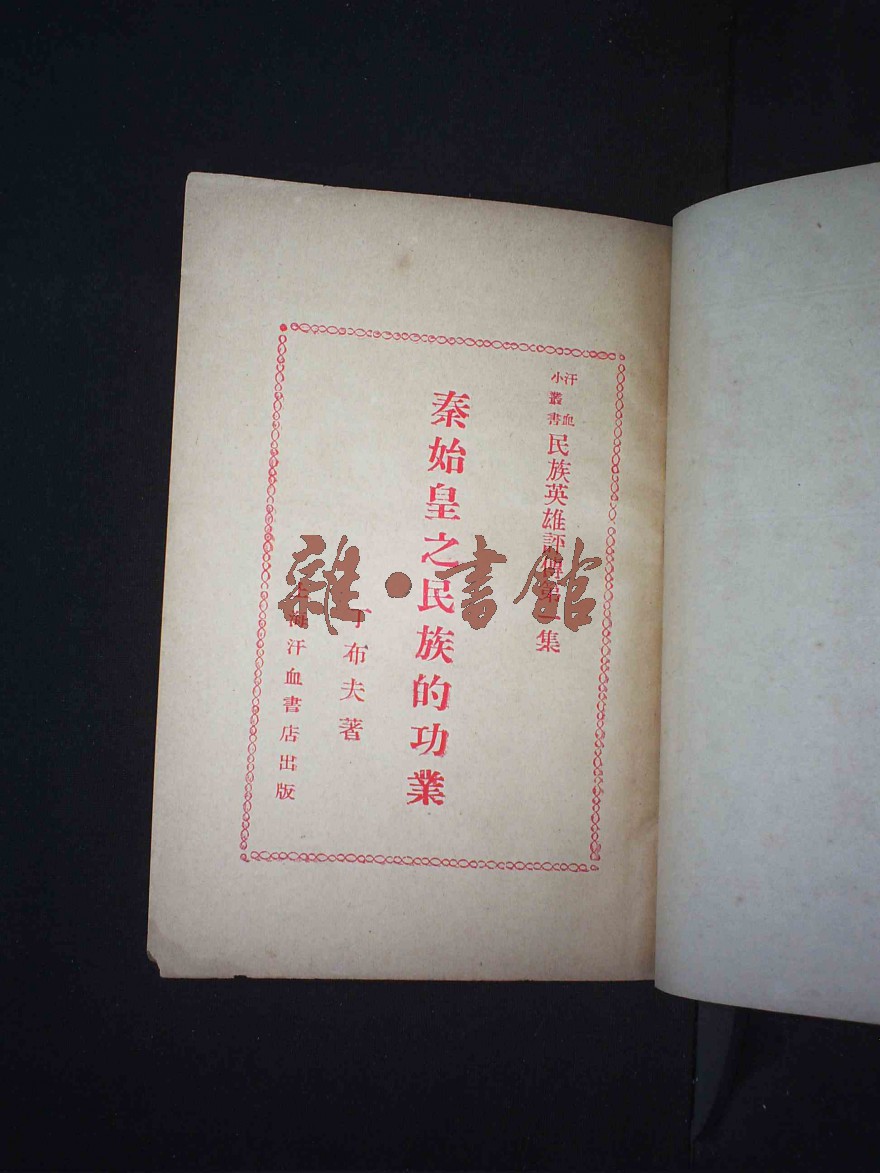 汗血小叢書
民族英雄評傳第一集
秦始皇之民族的功業
丁布夫著
上海汗血書店出版
雜·書館